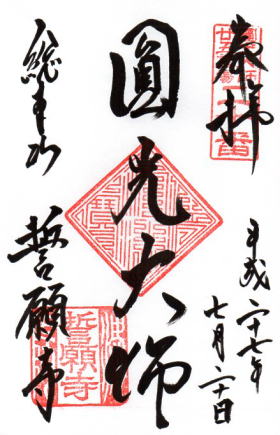 奉拝
平成二十七年
七月二十日
圓光大師
総本山
誓願寺
誓願寺